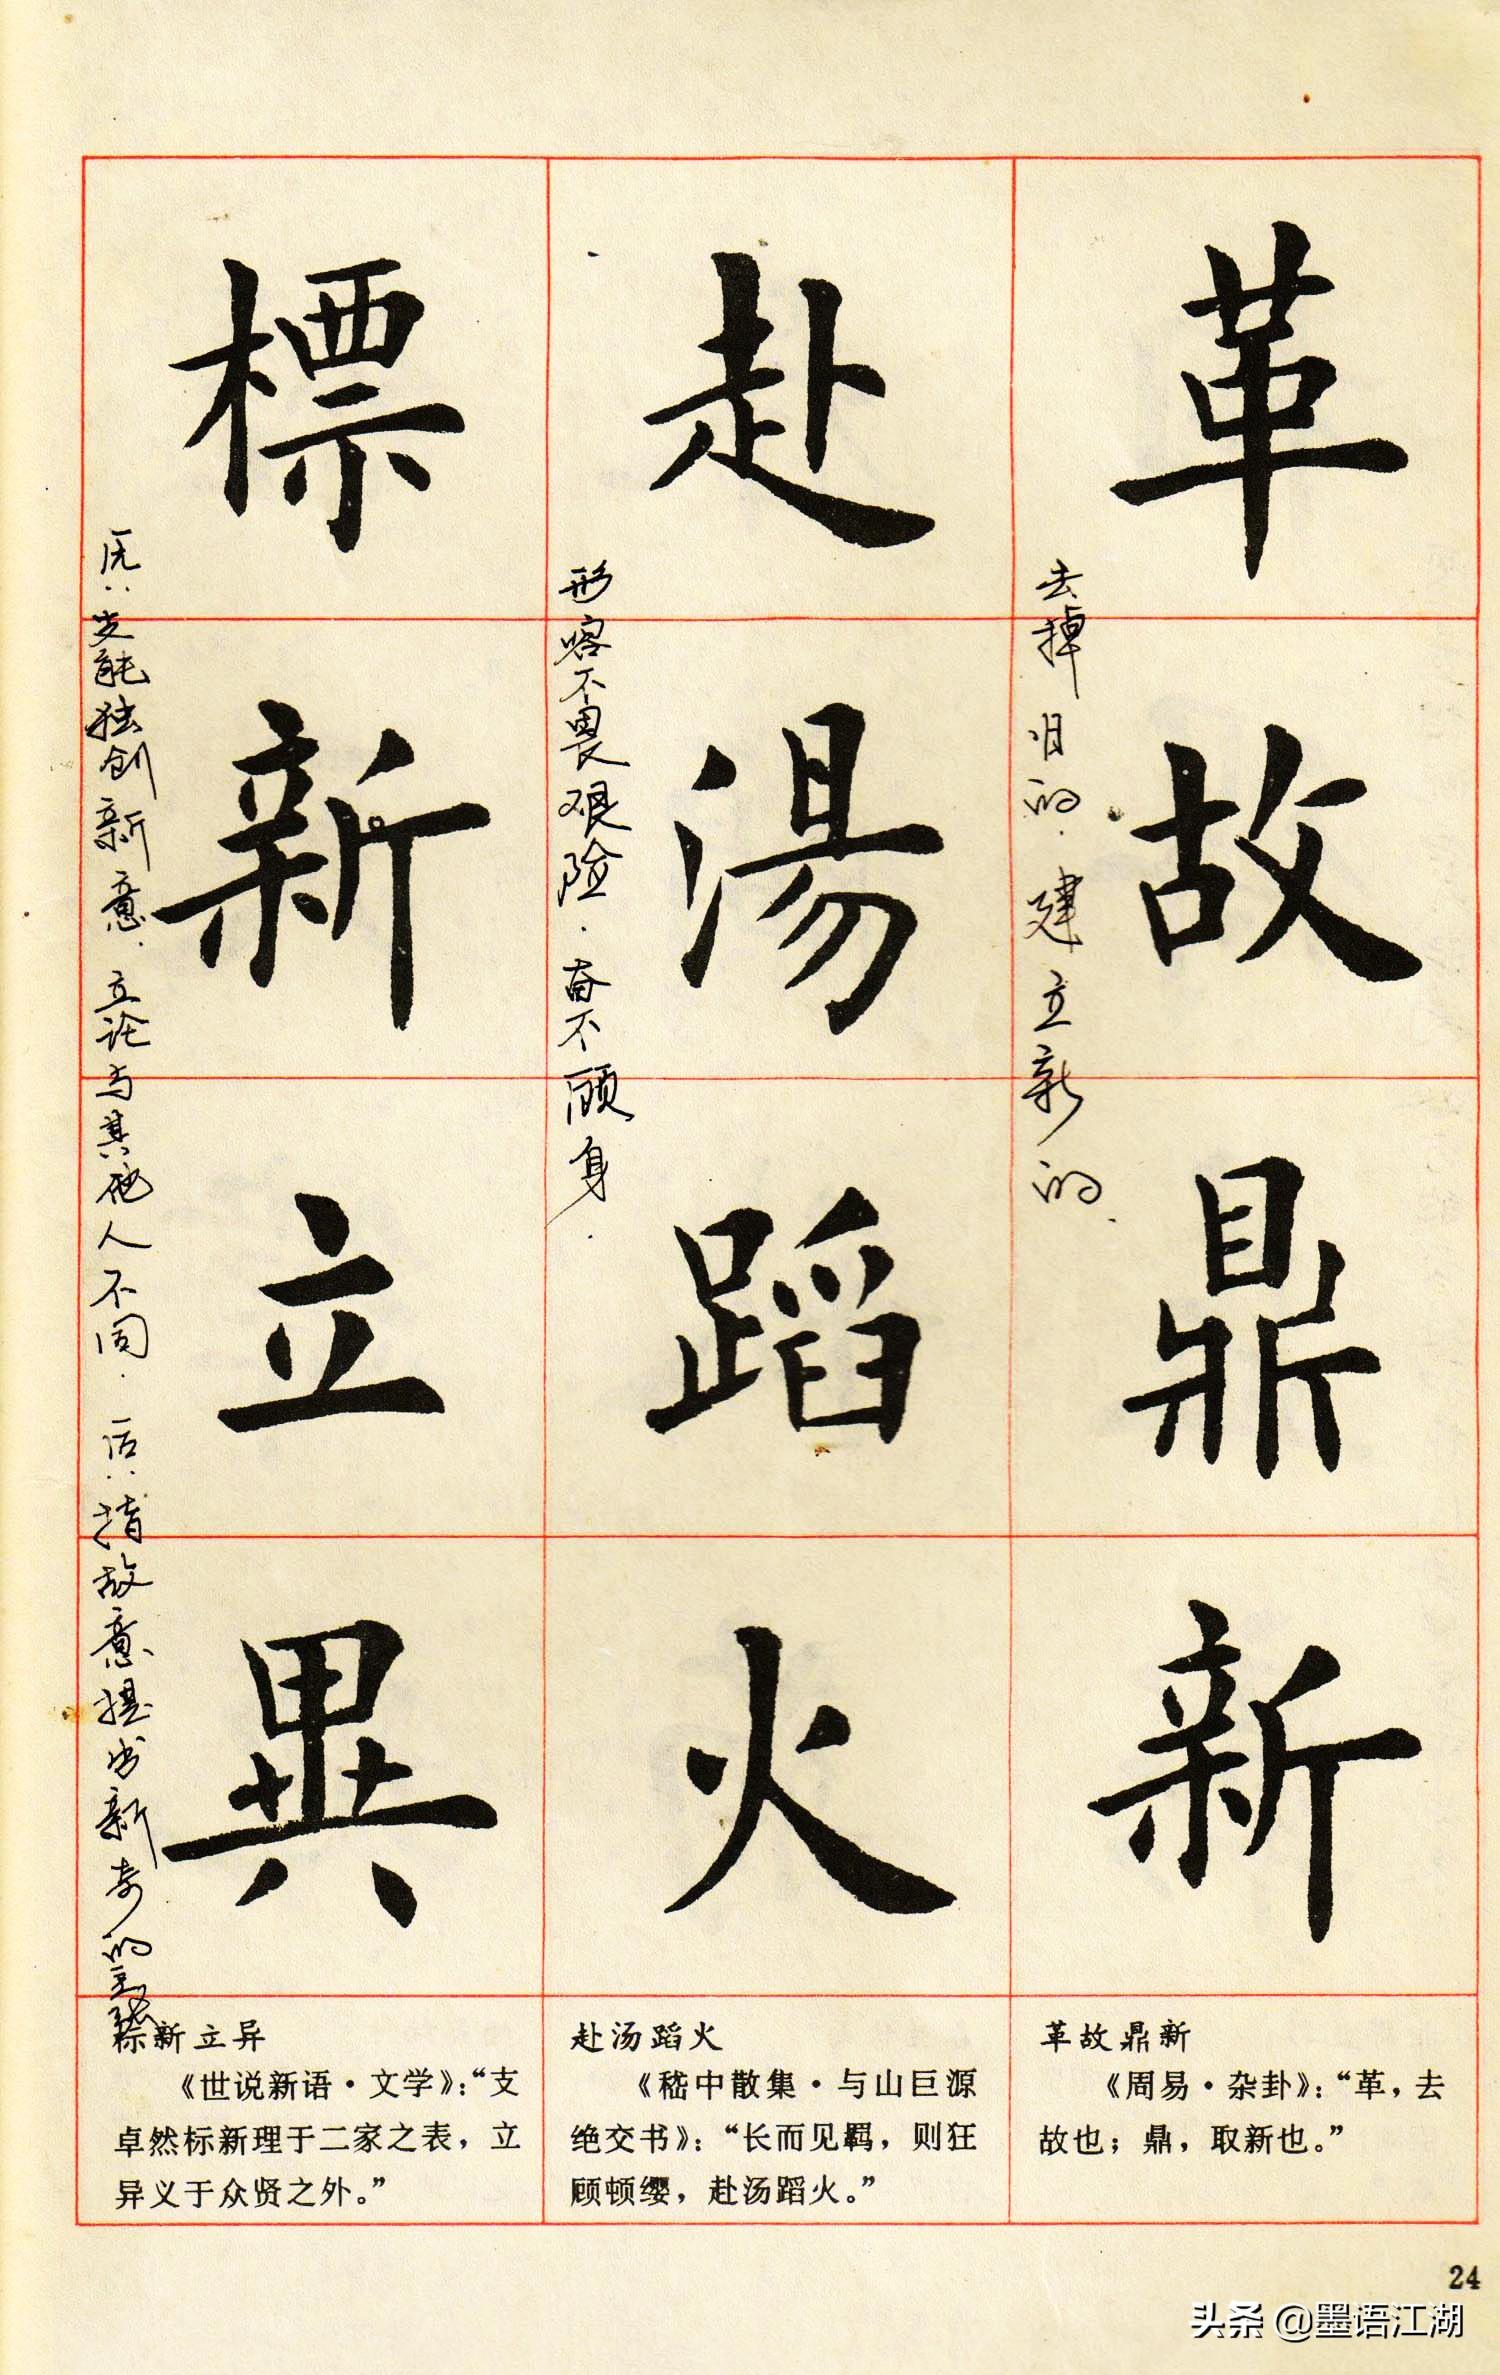 革故鼎新
赴湯蹈火
標新立異
去掉旧的.建立新的.
形容不畏艰险.奋不顾身.
能独创新意.立论与其他人不同.
后:指故意提出新奇的主张
革故鼎新
《周易·杂卦》:“革,去
故也;鼎,取新也。”
赴汤蹈火
《嵇中散集·与山巨源
绝交书》:“长而见羁,则狂
顾顿缨,赴汤蹈火。”
标新立异
《世说新语·文学》:“支
卓然标新理于二家之表,立
异义于众贤之外。”
24
头条@墨语江湖